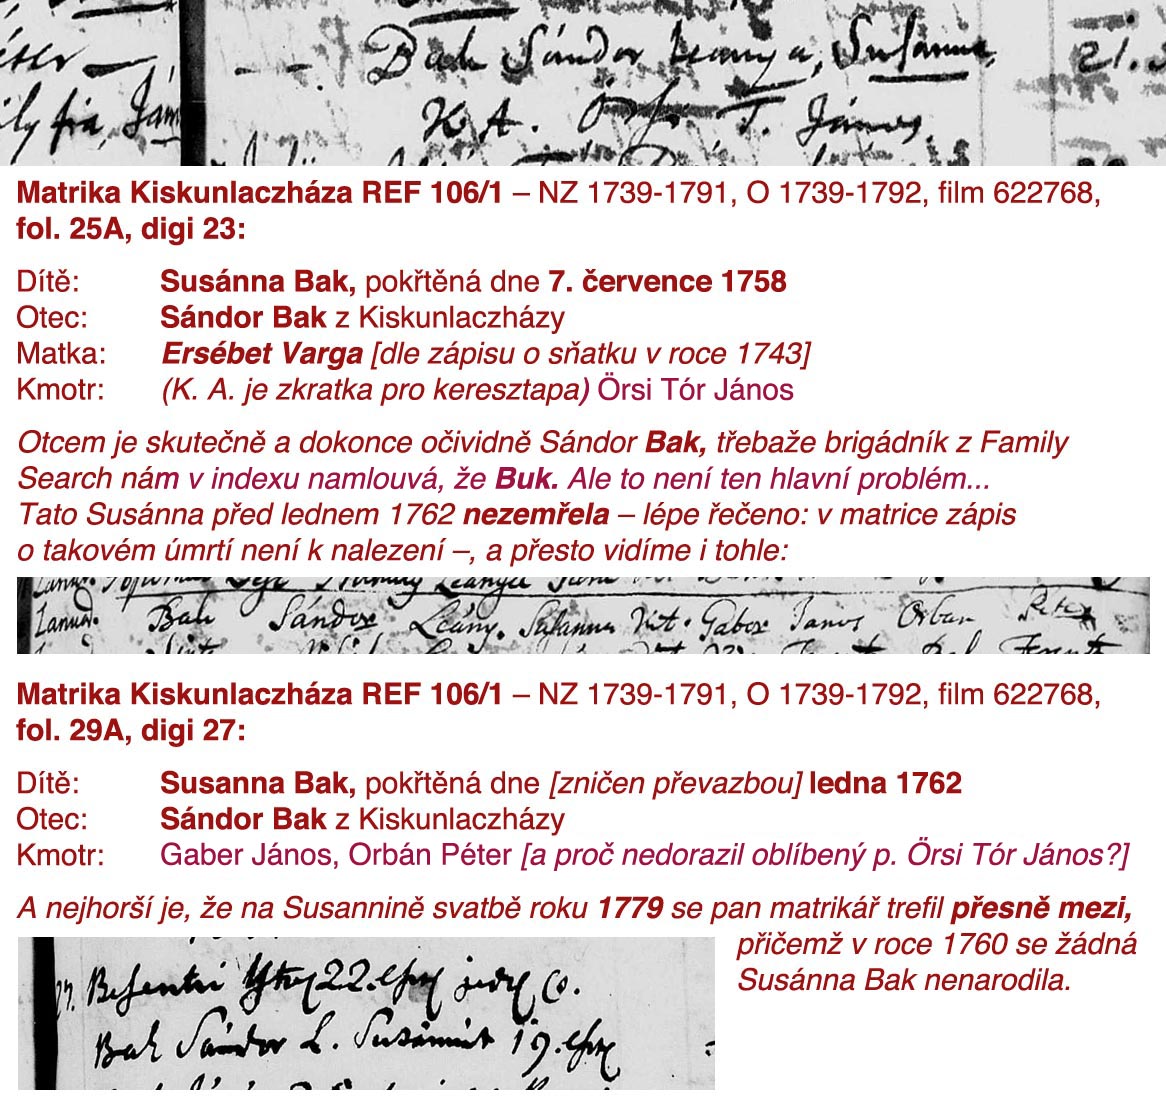 Bak Sándor Leanya, Susánna, 21.
K. A. Örsi T. János.
Matrika Kiskunlaczháza REF 106/1 – NZ 1739-1791, O 1739-1792, film 622768,
fol. 25A, digi 23:
Dítě: Susánna Bak, pokřtěná dne 7. července 1758
Otec: Sándor Bak z Kiskunlaczházy
Matka: Ersébet Varga [dle zápisu o sňatku v roce 1743]
Kmotr: (K. A. je zkratka pro keresztapa) Örsi Tór János
Otcem je skutečně a dokonce očividně Sándor Bak, třebaže brigádník z Family
Search nám v indexu namlouvá, že Buk. Ale to není ten hlavní problém...
Tato Susánna před lednem 1762 nezemřela – lépe řečeno: v matrice zápis
o takovém úmrtí není k nalezení –, a přesto vidíme i tohle:
Bak Sándor Leány. Susanna Gabor Janos Orban Peter
Matrika Kiskunlaczháza REF 106/1 – NZ 1739-1791, O 1739-1792, film 622768,
fol. 29A, digi 27:
Dítě: Susanna Bak, pokřtěná dne [zničen převazbou] ledna 1762
Otec: Sándor Bak z Kiskunlaczházy
Kmotr: Gaber János, Orbán Péter [a proč nedorazil oblíbený p. Örsi Tór János?]
A nejhorší je, že na Susannině svatbě roku 1779 se pan matrikář trefil přesně mezi,
přičemž v roce 1760 se žádná
Susánna Bak nenarodila.
22.
Bak Sándor L. Susánnát 19.